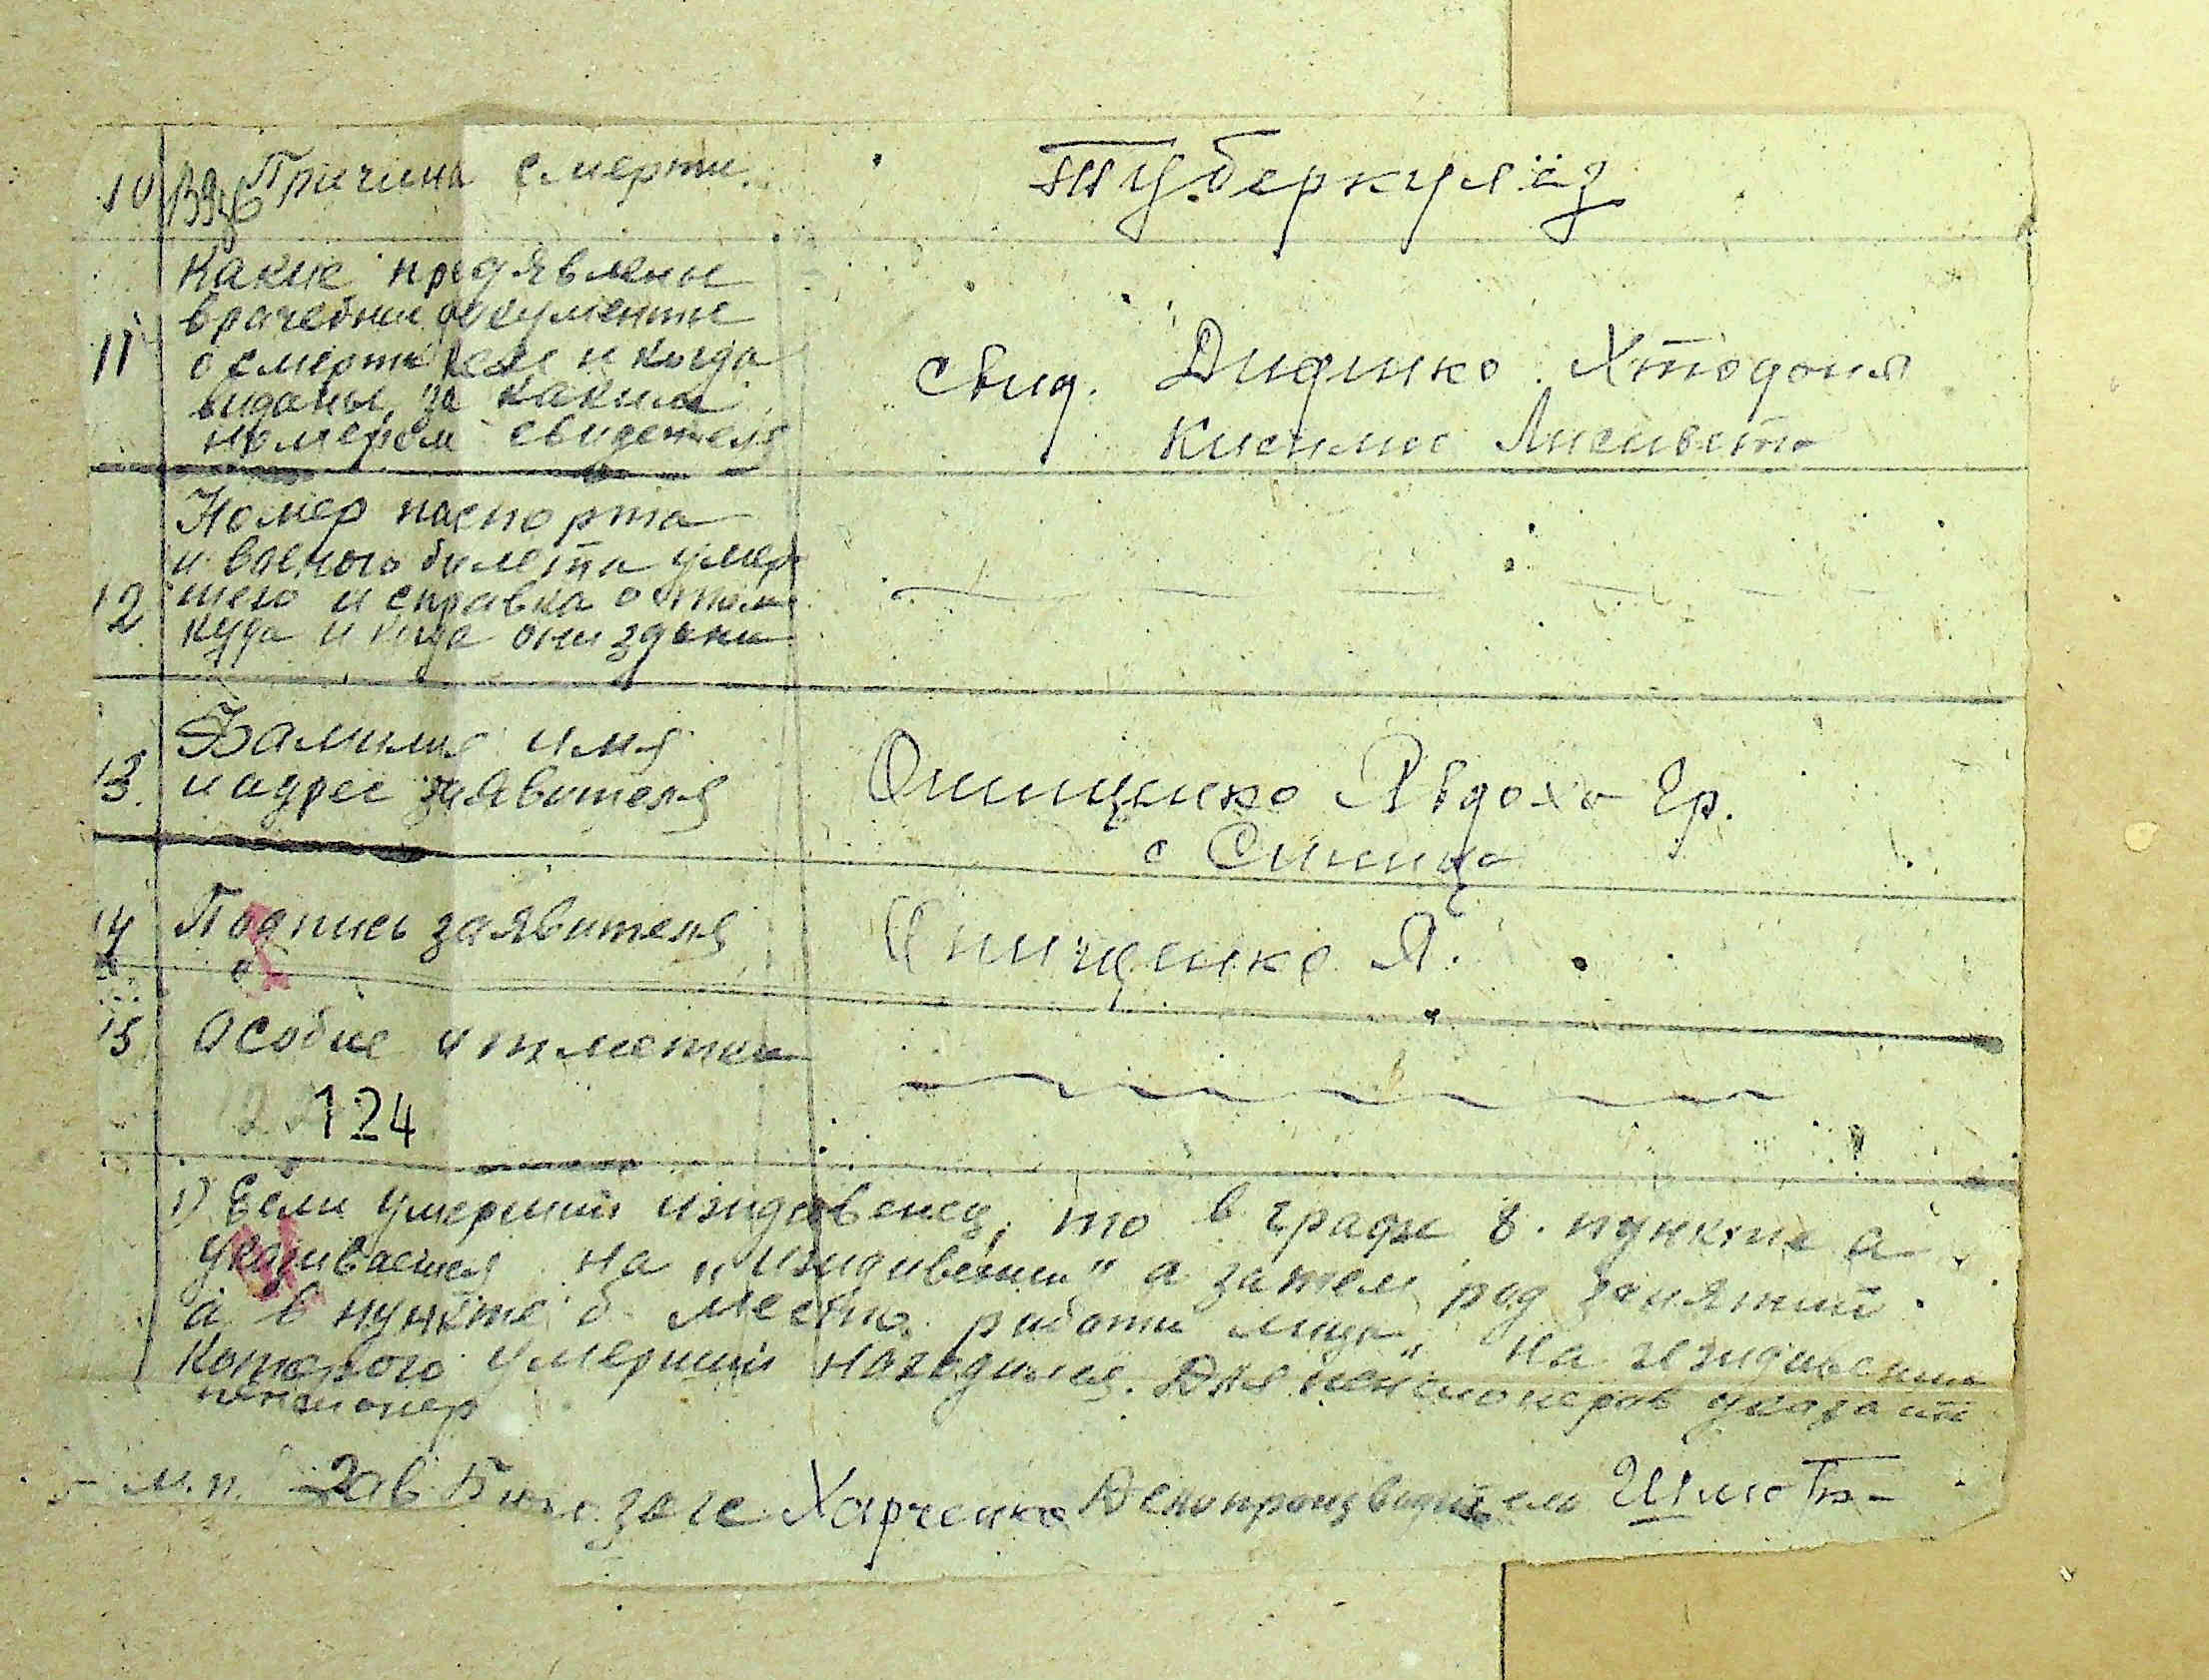 10 Причина смерти. Туберкулёз
11 Какие предявлены
врачебные документы
о смерти кем и когда
виданы, за каким
номером свидетеля
свид. Дидинко Хтодоня
Лисивета
12 Номер паспорта
и военого билета умер
шего и справка о том
куда и когда они здани
13. Фамилия имя
и адрес заявителя
Онищенко Явдоха Гр.
с Синица
14 Подпись заявителя Онищенко Я.
15 Особие отметки
124
1) Если умерший изидевенец, то в графе 8. пункте а
указивается на „изидивении" а затем род занятий.
а в пункте б место работи лица, на изидивении
которого умерший находился. Для пенсионеров указать
пенсионер
м.п. Зав Бюро загс Харченко Делопроизводитель